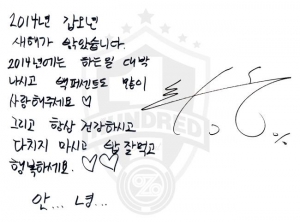 2014년 갑오년
새해가 밝았습니다.
2014년에는 하는일 대박
나시고 백퍼센트도 많이
사랑해주세요 ♡
그리고 항상 건강하시고
다치지 마시고 밥 잘먹고
행복하세요. ♡♡
안... 녕...
%
HUNDRED